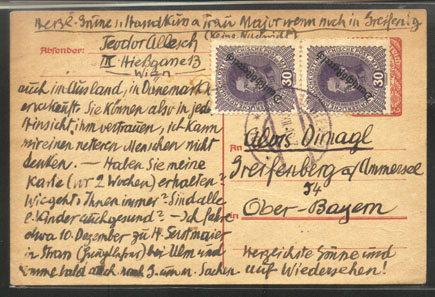 Herzl. Grüsse, Handküsse a. Frau Major wenn noch in Greifenbg
Absender:
(keine Nachricht)
Teodor Allesch
III Hießgasse 13
Wien
30
30
Deutschösterreich
Deutschösterreich
auch im Ausland, in Dänemark
Sie können also in jeder
Hinsicht ihm vertrauen, ich kann
mir einen netteren Menschen nicht
denken. – Haben Sie meine
Karte (vor 2 Wochen) erhalten?
Wie geht's Ihnen immer? Sind alle
Kinder auch gesund? – Ich fahre
etwa 10. Dezember zu H.
in Strass bei Ulm und
komme bald auch nach Sachen
An
Alois Dirnagl
Greifenberg a/Ammersee
54
In
Ober-Bayern
Herzlichste Grüsse und
auf Wiedersehen!